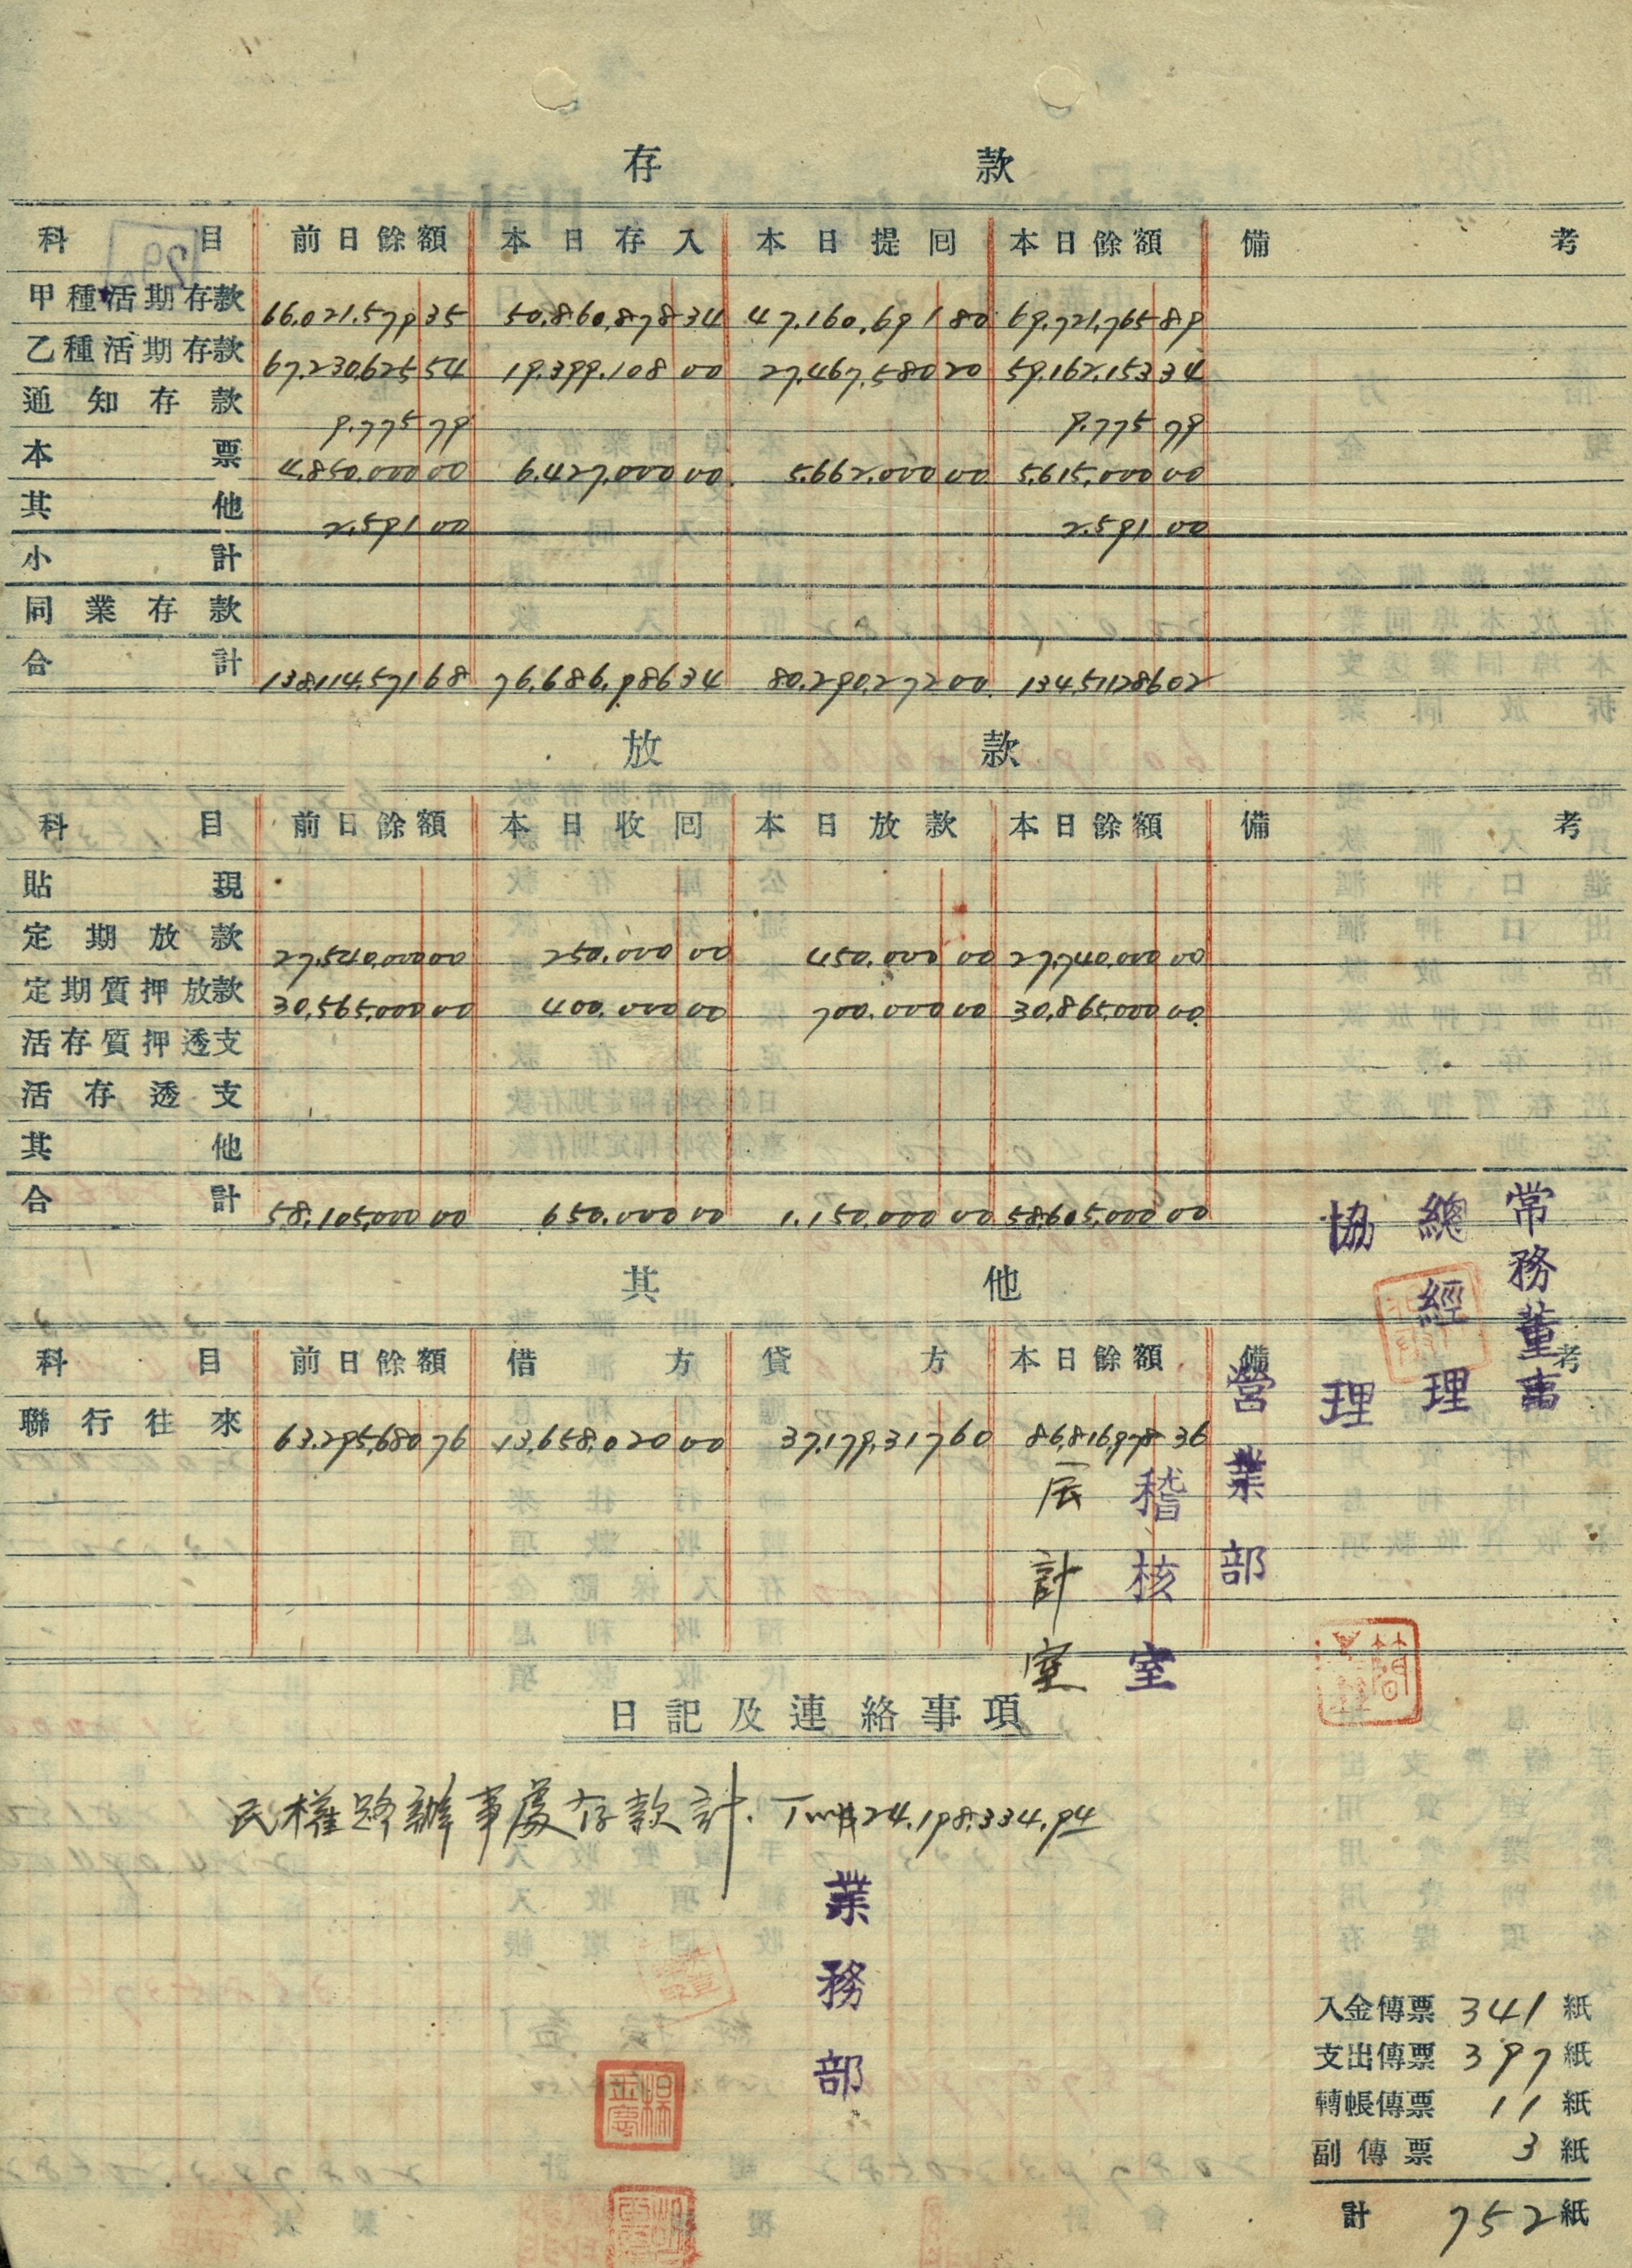 存款
科目 前日餘額 本日存入 本日提回 本日餘額 備考
甲種活期存款 66.021.579 35 50.860.878 34 47.160.691 80 69.721.765 89
乙種活期存款 67.230.625 54 19.399.108 00 27.467.580 20 59.162.153 34
通知存款 9.775 79 9.775 79
本票 4.850.000 00 6.427.000 00 5.662.000 00 5.615.000 00
其他 2.591 00 2.591 00
小計
同業存款
合計 138.114.571 68 76.686.986 34 80.290.272 00 134.511.286 02
放款
科目 前日餘額 本日收回 本日放款 本日餘額 備考
貼現
定期放款 27.540.000 00 250.000 00 450.000 00 27.740.000 00
定期質押放款 30.565.000 00 400.000 00 700.000 00 30.865.000 00
活存質押透支
活存透支
其他
合計 58.105.000 00 650.000 00 1.150.000 00 58.605.000 00
其他
科目 前日餘額 借方 貸方 本日餘額 備考
聯行往來 63.295.680 76 13.658.020 00 37.179.317 60 86.816.978 36
常務董事
總經理
協理
營業部
稽核室
計室
日記及連絡事項
民權路辦事處存款計. 24.198.334.94
業務部
入金傳票 341 紙
支出傳票 397 紙
轉帳傳票 11 紙
副傳票 3 紙
計 752 紙